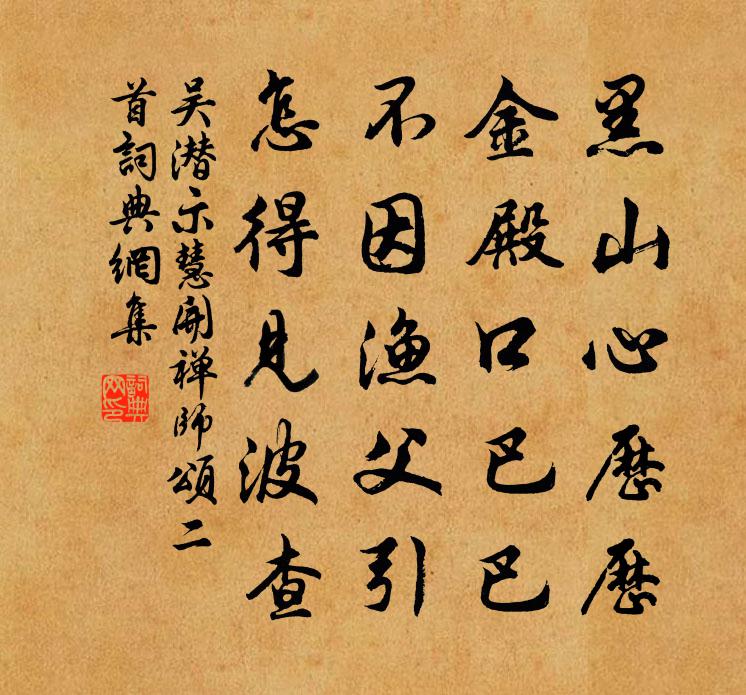 黑山心歷歷
金殿口巴巴
不因漁父引
怎得見波查
吴潜示慧開禅師頌二
首詞典網集
詞典網印